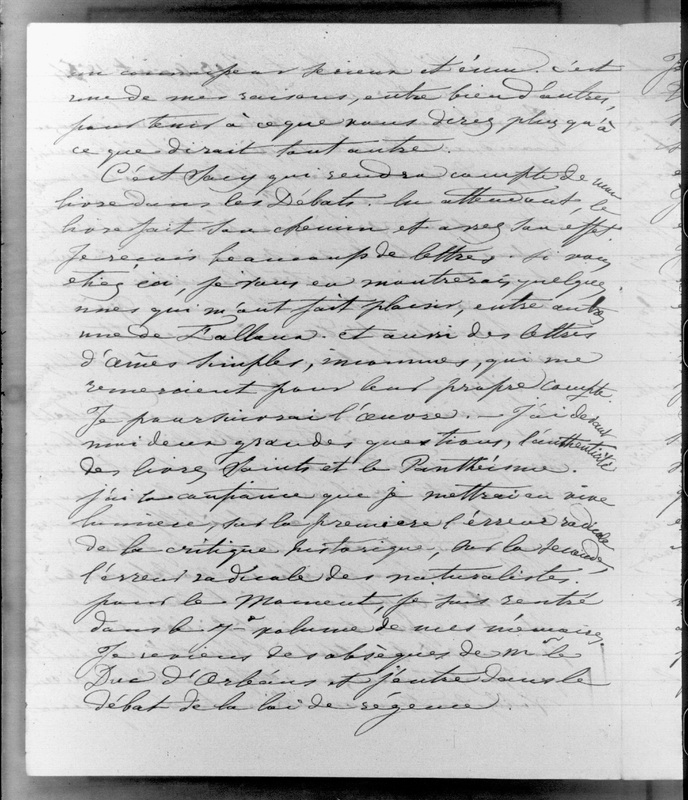 sérieux et ému. c'est
une de mes raisons, entre bien d'autres,
pour tenir à ce que vous direz plus qu'à
ce que dirait tout autre.
C'est Sacy qui rendra compte de mon
livre dans les Débats. En attendant, le
livre fait son chemin et assez son effet.
Je reçois beaucoup de lettres. Si vous
étiez ici, je vous en montrerais quelques
unes qui m'ont fait plaisir, entre autres
une de Falloux. et aussi des lettres
d'âmes simples, inconnues, qui me
remercient pour leur propre compte.
Je poursuivrai l'œuvre. - J'ai devant
moi deux grandes questions, l'authenticité
des livres Saints et le Panthéisme.
j'ai la confiance que je mettrai en vive
lumière, sur la première l'erreur radicale
de la critique historique, sur la seconde,
l'erreur radicale des naturalistes.
pour le moment, je suis rentré
dans le 7e volume de mes mémoires.
Je reviens des obsèques de Mr le
Duc d'Orléans et j'entre dans le
débat de la loi de régence.